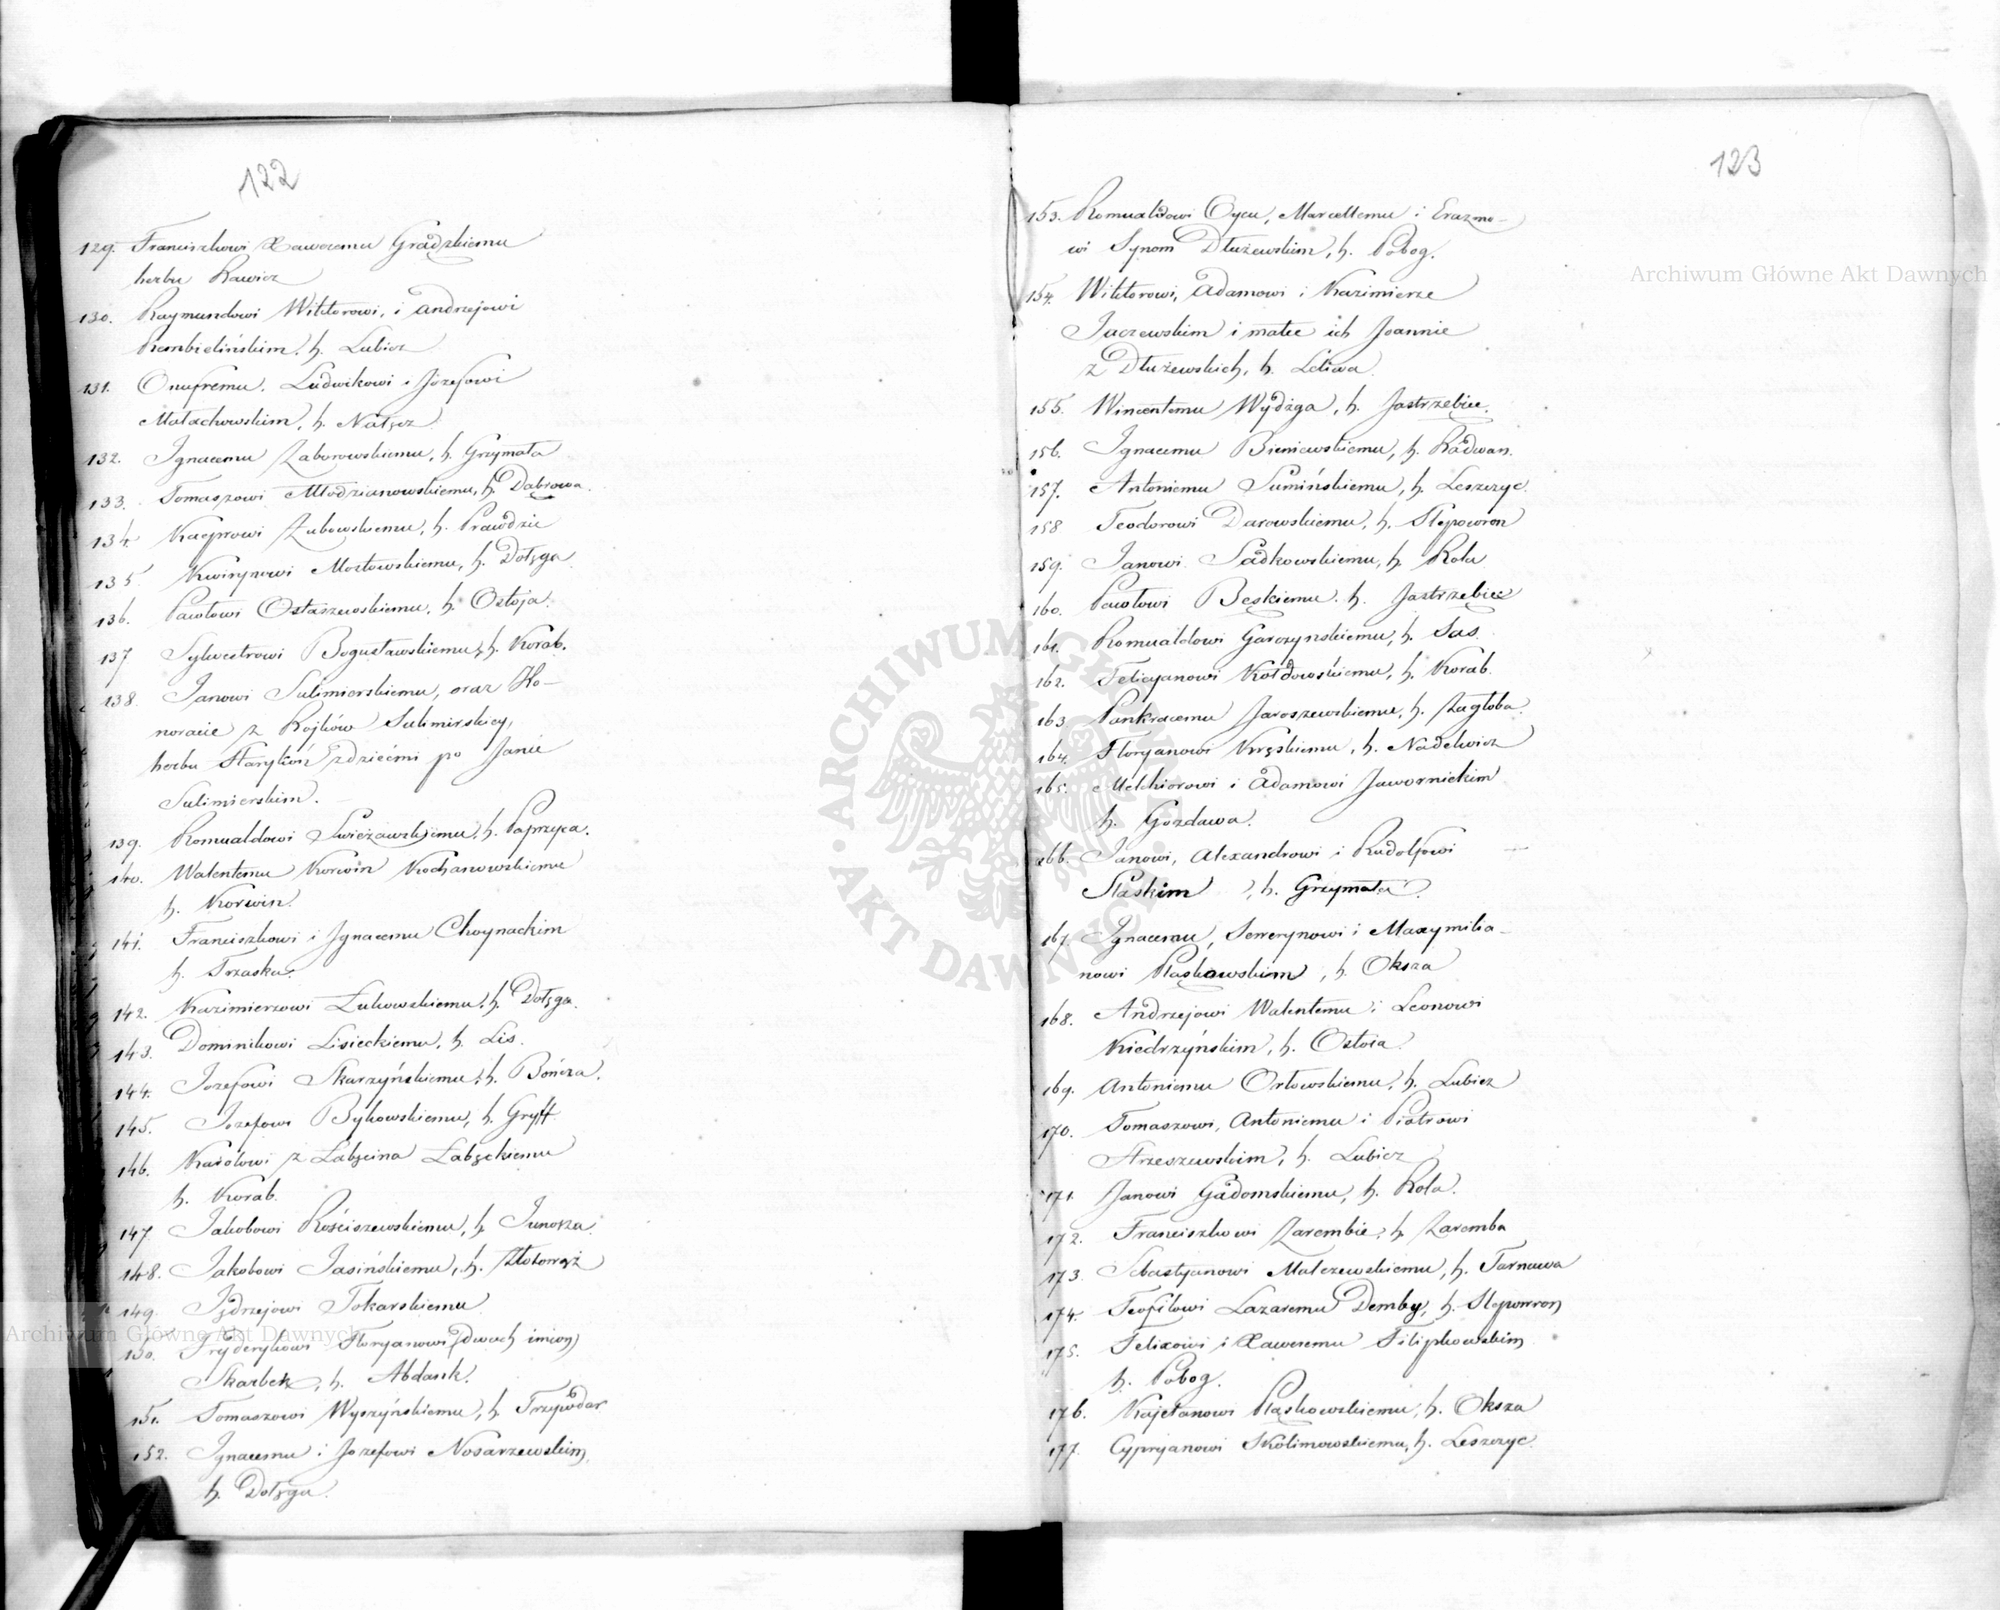 122
129. Franciszkowi Xaweremu Grądzkiemu
herbu Rawicz
130. Raymundowi Wiktorowi, i Andrzejowi
Rembielińskim, h. Lubicz
131. Onufremu, Ludwikowi i Józefowi
Małachowskim, h. Nałęcz
132. Ignacemu Zaborowskiemu, h. Grzymała
133. Tomaszowi Młodzianowskiemu, h. Dąbrowa.
134. Kacprowi Zubowskiemu, h. Prawdzic
135. Kwirynowi Mostowskiemu, h. Dołęga
136. Pawłowi Ostaszewskiemu, h. Ostoja.
137 Sylwestrowi Bogusławskiemu, h. Korab.
138. Janowi Sulimierskiemu, oraz Ho-
noracie z Rojków Sulimirskiey,
herbu Starykoń z dziećmi po Janie
Sulimierskim.
139. Romualdowi Świeżawskiemu, h. Paprzyca.
140. Walentemu Korwin Kochanowskiemu
h. Korwin.
141. Franciszkowi i Ignacemu Choynackim
h. Trzaska.
142. Kazimierzowi Łukowskiemu, h. Dołęga.
143. Dominikowi Lisieckiemu, h. Lis.
144. Jozefowi Skarzyńskiemu, h. Bończa.
145. Jozefowi Bykowskiemu, h. Gryff
146. Karolowi z Łabęcina Łabęckiemu
h. Korab.
147 Jakobowi Rościszewskiemu, h. Junosza.
148. Jakobowi Jasińskiemu, h. Złotowąż
149. Jędrzejowi Tokarskiemu
150. Fryderykowi Floryanowi (dwuch imion)
Skarbek, h. Abdank.
151. Tomaszowi Wyszyńskiemu, h. Trzywdar
152. Ignacemu i Jozefowi Nosarzewskim,
h. Dołęga.
123
153. Romualdowi Oycu, Marcellemu i Erazmo-
wi Synom Dłużewskim, h. Pobog.
154. Wiktorowi, Adamowi i Kazimierze
Jaczewskim i matce ich Joannie
z Dłużewskich, h. Leliwa.
155. Wincentemu Wydżga, h. Jastrzębiec.
156. Ignacemu Bieniewskiemu, h. Radwan.
157. Antoniemu Sumińskiemu, h. Leszczyc.
158 Teodorowi Darowskiemu, h. Slepowron
159. Janowi Sadkowskiemu, h. Rola
160. Pawłowi Bęskiemu. h. Jastrzębiec
161. Romualdowi Garczynskiemu, h. Sas.
162. Felicyanowi Kołdowskiemu, h. Korab.
163 Pankracemu Jaroszewskiemu, h. Zagłoba.
164. Floryanowi Kręskiemu, h. Nadelwicz
165. Melchiorowi i Adamowi Jawornickim
h. Gozdawa.
166. Janowi, Alexandrowi i Rudolfowi
Slaskim, h. Grzymała.
167. Ignacemu, Sewerynowi i Maxymilia-
nowi Płaskowskim, h. Oksza
168. Andrzejowi Walentemu i Leonowi
Kiedrzyńskim, h. Ostoia.
169. Antoniemu Orłowskiemu, h. Lubicz
170. Tomaszowi, Antoniemu i Piotrowi
Strzeszewskim, h. Lubicz
171. Janowi Gadomskiemu, h. Rola.
172. Franciszkowi Zarembie, h. Zaremba
173. Sebastyanowi Malczewskiemu, h. Tarnawa
174. Teofilowi Lazaremu Demby, h. Slepowron
175. Felixowi i Xaweremu Filipkowskim
h. Pobog.
176. Kajetanowi Płaskowskiemu, h. Oksza
177. Cypryanowi Skolimowskiemu, h. Leszczyc.
Archiwum Główne Akt Dawnych
Archiwum Główne Akt Dawnych
ARCHIWUM GŁÓWNE AKT DAWNYCH